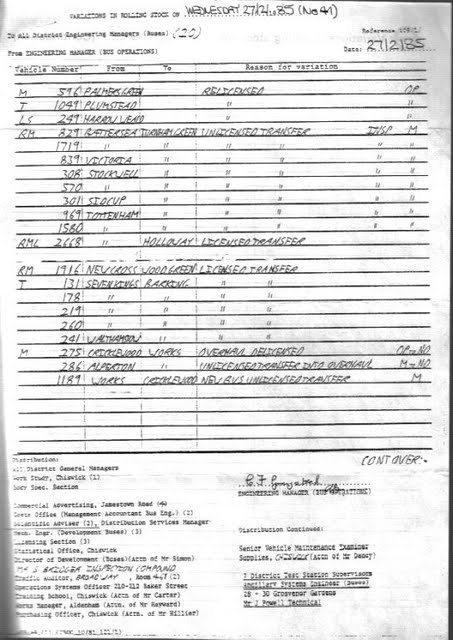 VARIATIONS IN ROLLING STOCK ON WEDNESDAY 27/2/1985 (No 41)
To All District Engineering Managers (Buses) (20)
Reference
From ENGINEERING MANAGER (BUS OPERATIONS)
Date: 27/2/85
Vehicle Number From To Reason for variation
M 596 PALMERS GREEN RELICENSED OP
T 1049 PLUMSTEAD " "
LS 249 HARROW WEALD " "
RM 829 BATTERSEA TURNHAM GREEN UNLICENSED TRANSFER INSP M
1719 " " " " " "
839 VICTORIA " " " " "
308 STOCKWELL " " " " "
570 " " " " " "
301 SIDCUP " " " " "
969 TOTTENHAM " " " " "
1580 " " " " " "
RML 2668 " HOLLOWAY LICENSED TRANSFER
RM 1916 NEW CROSS WOOD GREEN LICENSED TRANSFER
T 131 SEVEN KINGS BARKING " "
178 " " " "
219 " " " "
260 " " " "
241 WALTHAMSTOW " " "
M 275 CRICKLEWOOD WORKS OVERHAUL DELICENSED OP to NO
286 ALPERTON " UNLICENSED TRANSFER INTO OVERHAUL M to NO
1189 WORKS CRICKLEWOOD NEW BUS UNLICENSED TRANSFER M
CONT OVER:-
Distribution:
All District General Managers
Work Study, Chiswick (1)
Body Spec. Section
ENGINEERING MANAGER (BUS OPERATIONS)
Commercial Advertising, Jamestown Road
Costs Office (Management Accountant Bus Eng.) (2)
Scientific Adviser (2), Distribution Services Manager
Mech. Engr. (Development Buses) (3)
Licensing Section (3)
Statistical Office, Chiswick
Director of Development (Buses)(Attn of Mr Simon)
MR S BRIDGER INSPECTION COMPOUND
Traffic Auditor, BROADWAY, Room (2)
Operations Systems Officer 210-212 Baker Street
Training School, Chiswick (Attn. of Mr Carter)
Works Manager, Aldenham (Attn. of Mr Hayward)
Purchasing Officer, Chiswick (Attn of Mr Hillier)
Distribution Continued:
Senior Vehicle Maintenance Examiner
Supplies, CHISWICK (Attn of Mr Dency)
7 District Test Station Supervisors
Ancillary Systems Engineer (Buses)
18 - 30 Grosvenor Gardens
Mr J Powell Technical